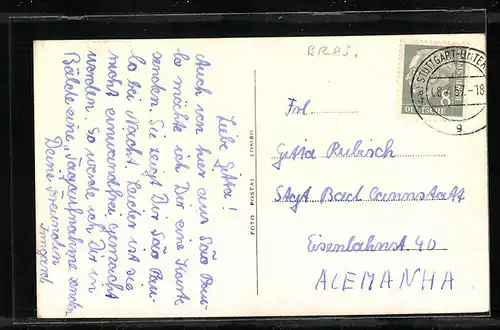 Liebe Gitta!
Auch von hier aus São Pau-
lo möchte ich Dir eine Karte
senden. Sie zeigt Dir São Pau-
lo bei Nacht. Leider ist sie
nicht einwandfrei gemacht
worden. So werde ich Dir in
Bälde eine Tagaufnahme senden.
Deine Freundin
Irmgard
FOTO POSTAL LOMBO
BRAS.
STUTTGART-UNTER
DEUTSCHE
BUNDESPOST
8
Frl.
Gitta Rubisch
Stgt Bad Cannstatt
Eisenbahnst. 40
ALEMANHA